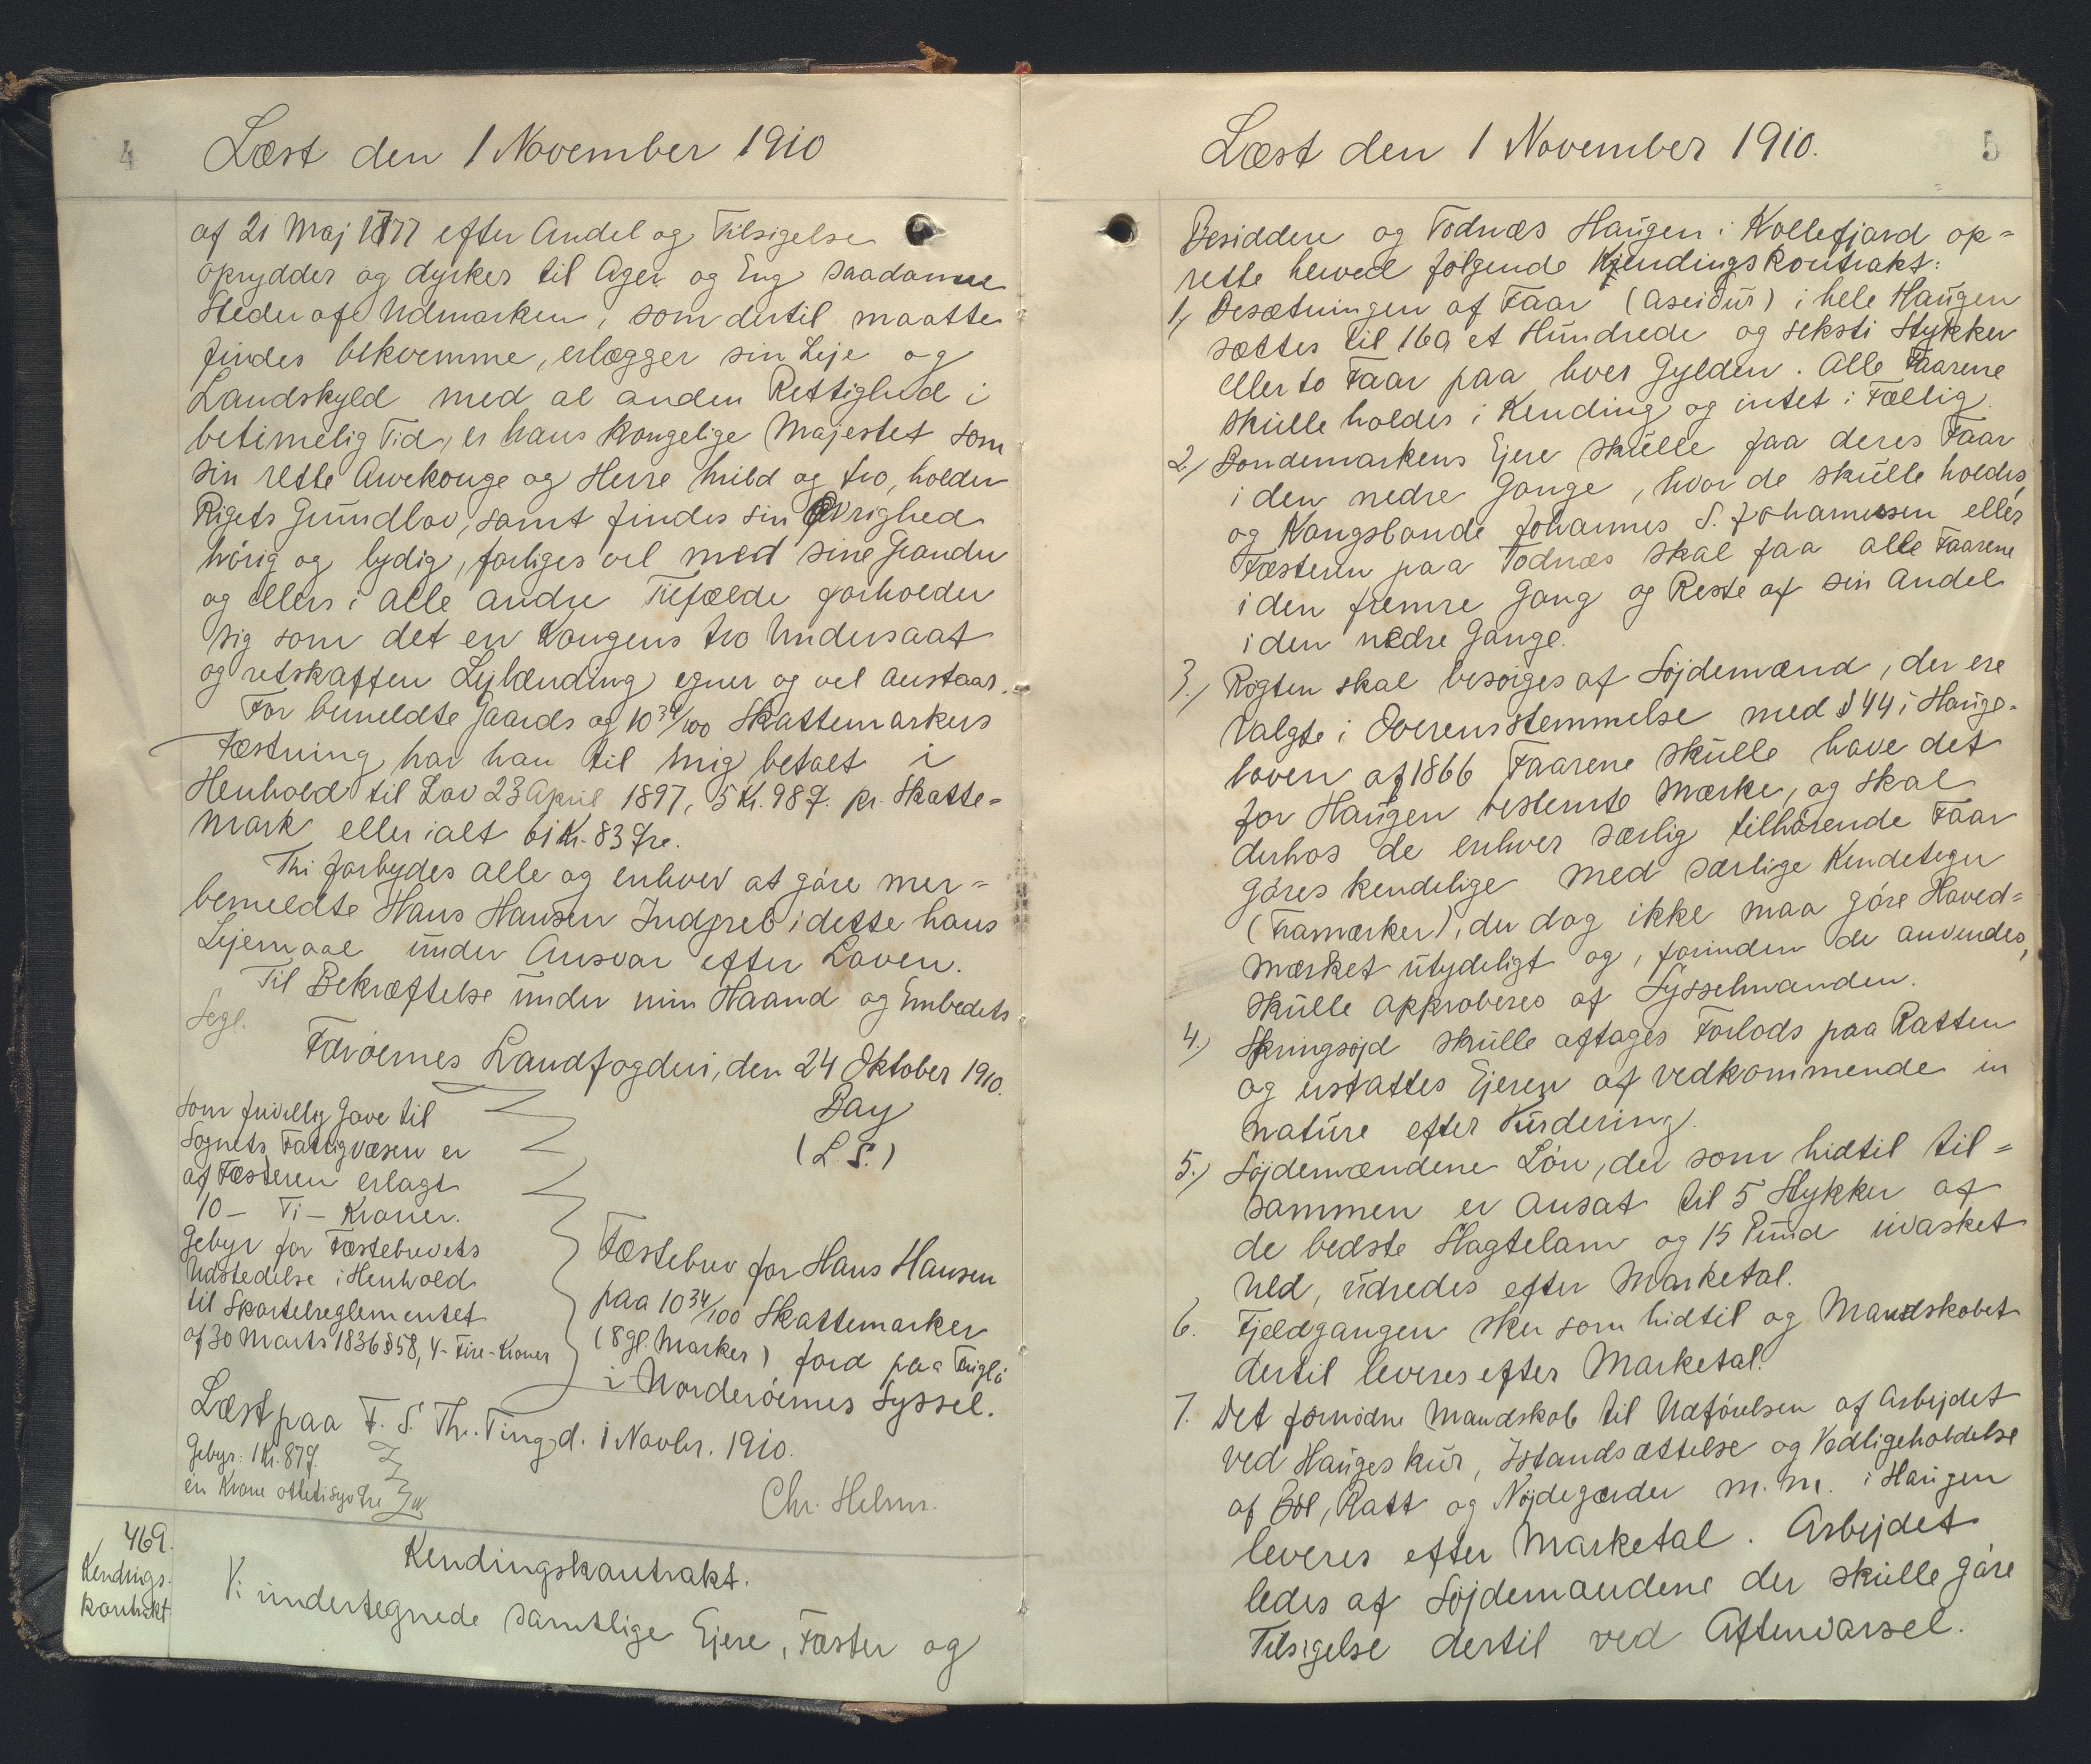 4
Læst den 1 November 1910
af 21 Maj 1777 efter Andel og Tilsigelse
oprydder og dyrker til Ager og Eng saadanne
Steder af Udmarken, som dertil maatte
findes bekvemme, erlægger sin Leje og
Landskyld med al anden Rettighed i
betimelig Tid, er hans kongelige Majestet som
sin rette Arvekonge og Herre huld og tro, holder
Rigets Grundlov, samt findes sin Øvrighed
hørig og lydig, forliges vel med sine Grander
og ellers i alle andre Tilfælde forholder
sig som det en Kongens tro Undersaat
og retskaffen Lejlænding egner og vel anstaar.
For bemeldte Jaards og 10 34/100 Skattemarkers
Fæstning har han til mig betalt i
Henhold til Lov 23 April 1897, 5 Kr. 98 Ø. pr. Skatte=
mark eller ialt 61 Kr. 83 Øre.
Thi forbydes alle og enhver at gøre mer=
bemeldte Hans Hansen Indgreb i dette hans
Lejemaal under Ansvar efter Loven.
Til Bekræftelse under min Haand og Embedets
Segl.
Færøernes Landfogderi, den 24 Oktober 1910.
Bay
(L.S.)
som frivillig Gave til
Sognets Fattigvæsen er
af Fæsteren erlagt
10 - Ti - Kroner.
Gebyr for Fæstebrevets
Udstedelse i Henhold
til Sportelreglementet
af 30 Marts 1836 § 58, 4 - Fire - Kroner
Fæstebrev for Hans Hansen
paa 10 34/100 Skattemarker
(8 gl. Marker) Jord paa Fuglø
i Norderøernes Syssel.
Læst paa F. S. Th. Ting d. 1 Novbr. 1910.
Gebyr: 1 Kr. 87 Ø.
én Krone ottetisyv Øre
Chr. Helms.
469.
Kendings-
kontrakt
Kendingskontrakt.
Vi undertegnede samtlige Ejere, Fæster og
Læst den 1 November 1910.
5
Besiddere og Todnæs Haugen i Kollefjord op=
rette herved følgende Kjendingskontrakt:
1, Besætningen af Faar (áseiður) i hele Haugen
sættes til 160 et Hundrede og seksti Stykker
eller to Faar paa hver Gylden. Alle Faarene
skulle holdes i Kending og intet i Fællig.
2.) Bondemarkens Ejere skulle faa deres Faar
i den nedre Gonge, hvor de skulle holdes,
og Kongsbonde Johannes S. Johannesen eller
Fæsteren paa Todnæs skal faa alle Faarene
i den fremre Gong og Reste af sin Andel
i den nedre Gonge.
3.) Røgten skal besørges af Søjdemænd, der ere
valgte i Overensstemmelse med § 44 i Hauge-
loven af 1866 Faarene skulle have det
for Haugen bestemte Mærke, og skal
derhos de enhver særlig tilhørende Faar
gøres kendelige med særlige Kendetegn
(Framærker), der dog ikke maa gøre Hoved=
mærket utydeligt og, forinden de anvendes,
skulle approberes af Sysselmanden.
4.) Skringsøjd skulle aftages Forlods paa Ratten
og erstattes Ejeren af vedkommende in
nature efter Vurdering.
5.) Søjdemændene Løn, der som hidtil til=
sammen er ansat til 5 Stykker af
de bedste Slagtelam og 15 Pund uvasket
Uld, udredes efter Marketal.
6. Fjeldgangen sker som hidtil og Mandskabet
dertil leveres efter Marketal.
7. Det fornødne Mandskab til Udførelsen af Arbejdet
ved Haugeskur, Istandsættelse og Vedligeholdelse
af Ból, Ratt og Nøjdegærder m. m. i Haugen
leveres efter Marketal. Arbejdet
ledes af Søjdemændene der skulle gøre
Tilsigelse dertil ved Aftenvarsel.